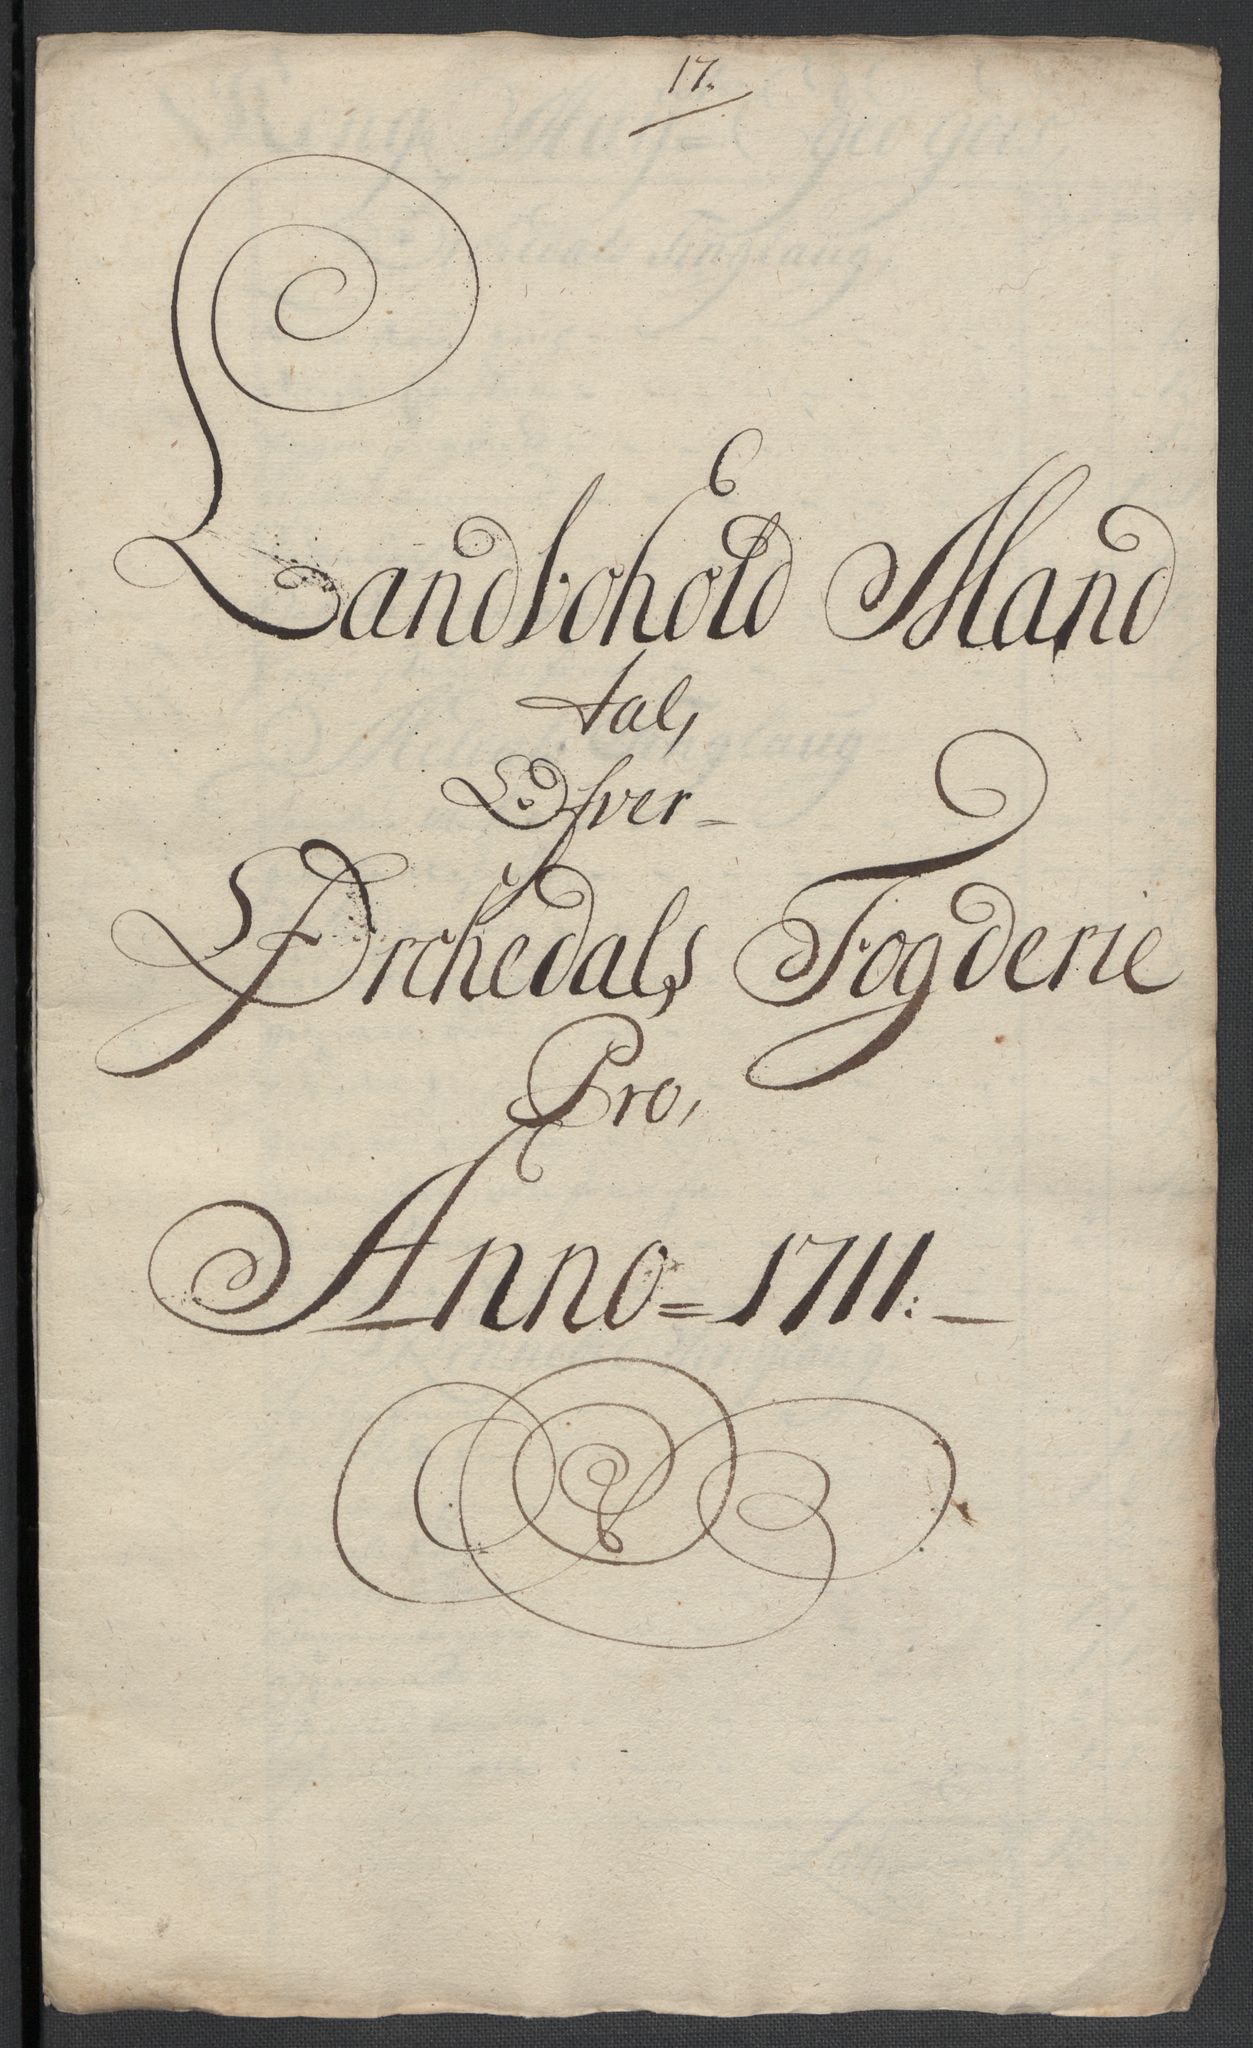 17.
Landbohold Mand
tal,
Ofver
Orchedals Fogderie
Pro,
Anno = 1711: